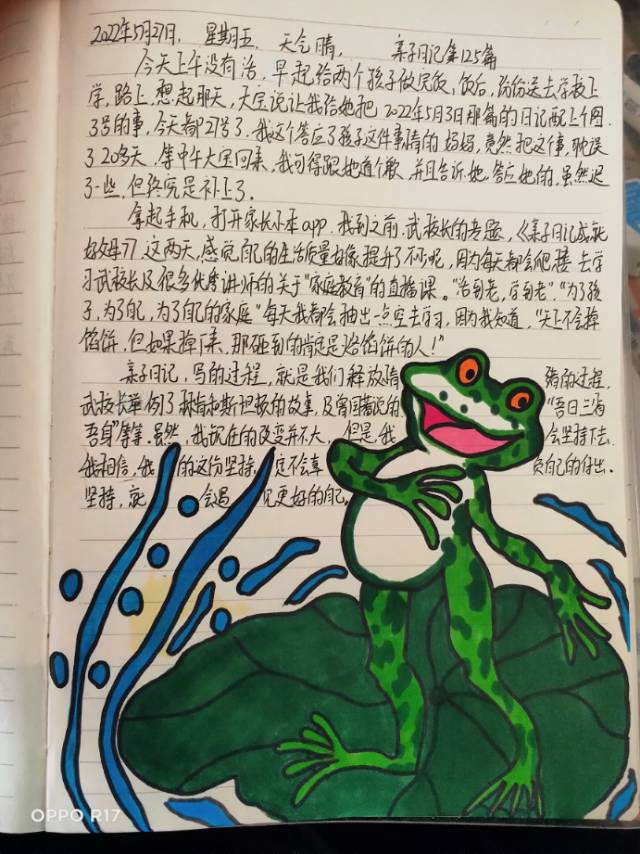 2022年5月27日, 星期五, 天气晴, 亲子日记第125篇
今天上午没有活,早起给两个孩子做完饭,饭后,份份送去学校上
学,路上,想起那天,大宝说让我给她把2022年5月3日那篇的日记配上个图.
3号的事,今天都27号了.我这个答应了孩子这件事情的妈妈,竟然把这个事,耽误
了20多天,等中午大宝回来,我可得跟她道个歉,并且告诉她,答应她的,虽然迟
了一些,但终究是补上了.
拿起手机,打开家长小本app,找到之前,武校长的专题,《亲子日记成就
好父母》7,这两天,感觉自己的生活质量好像提升了不少呢,因为每天都会爬楼去学
习武校长及很多优秀讲师的关于"家庭教育"的直播课。"活到老,学到老","为了孩
子,为了自己,为了自己的家庭"每天我都会抽出一点空去学习,因为我知道,"天上不会掉
馅饼,但如果掉下来,那砸到的肯定是烙馅饼的人!"
亲子日记,写的过程,就是我们释放 情的过程,
武校长举例了林肯和斯坦顿的故事,及曾国藩说的 "吾日三省
吾身"等等.虽然,我现在的改变并不大,但是,我 会坚持下去.
我相信,我 的这份坚持, 定不会辜 负自己的付出.
坚持,就 会遇 见更好的自己.
OPPO R17